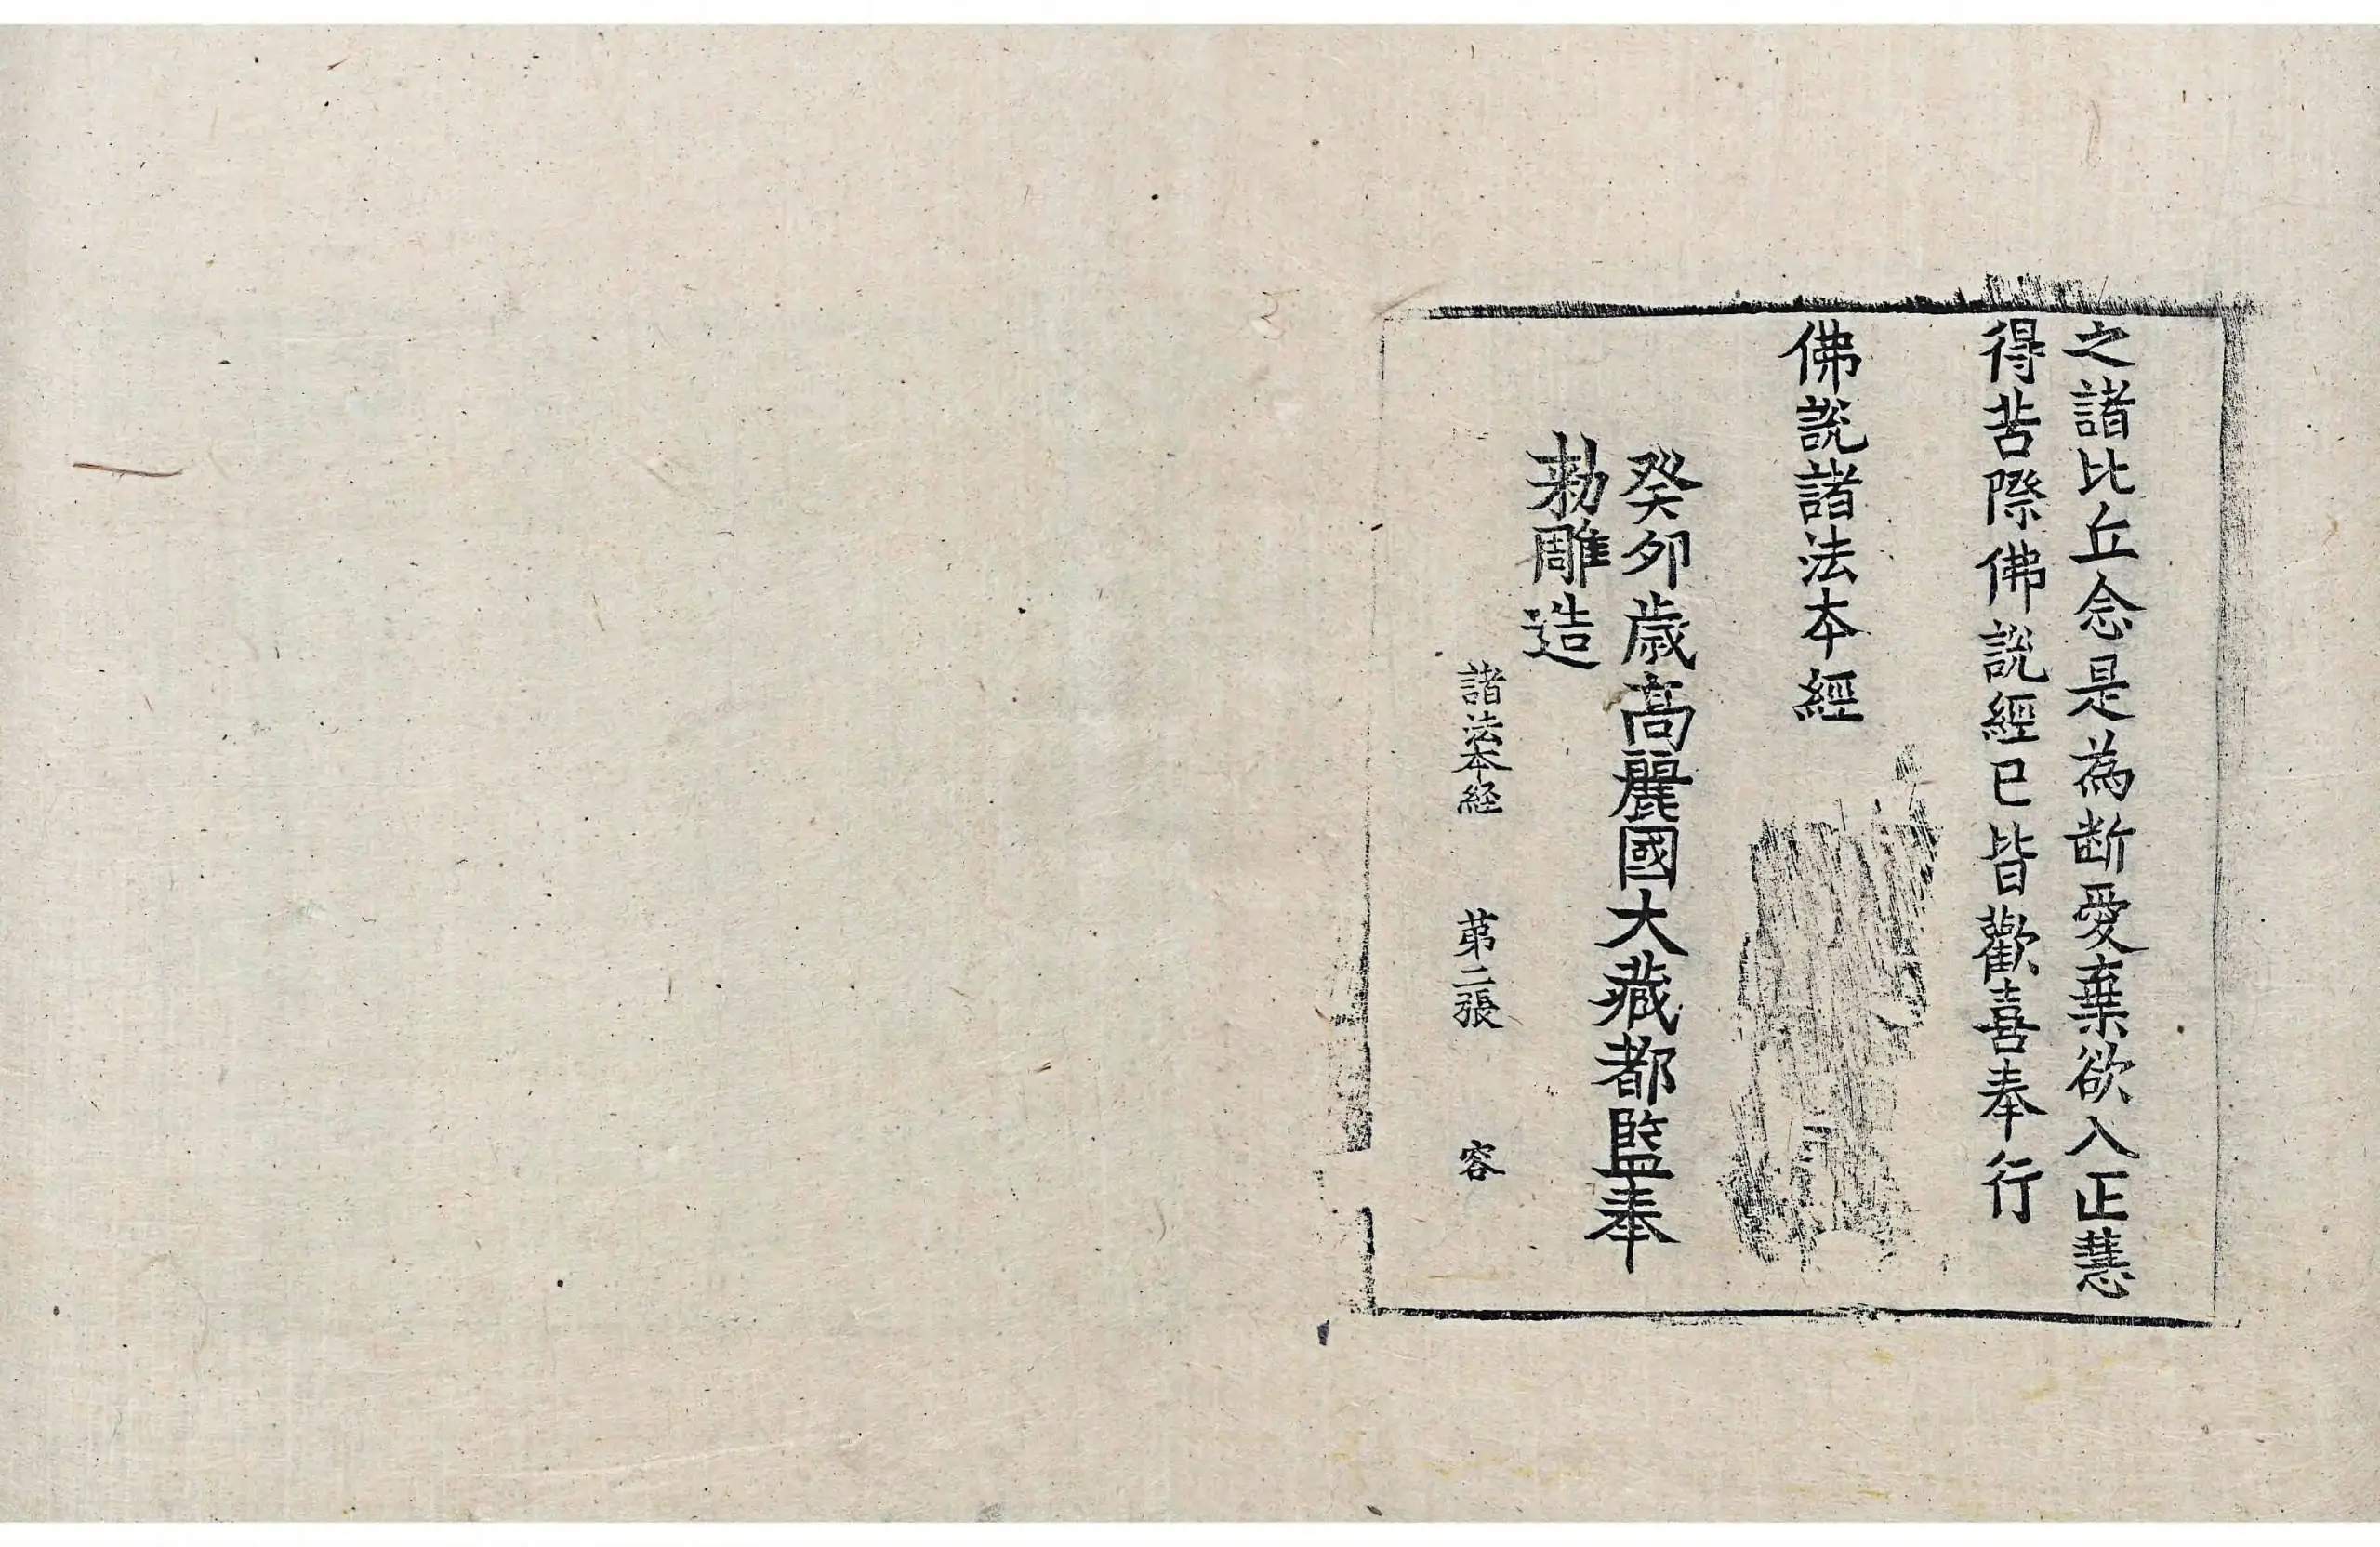 之諸比丘念是為断愛棄欲入正慧
得苦際佛説經已皆歡喜奉行
佛説諸法本經
癸卯歳高麗國大藏都監奉
勅雕造
諸法本経 第二張 容